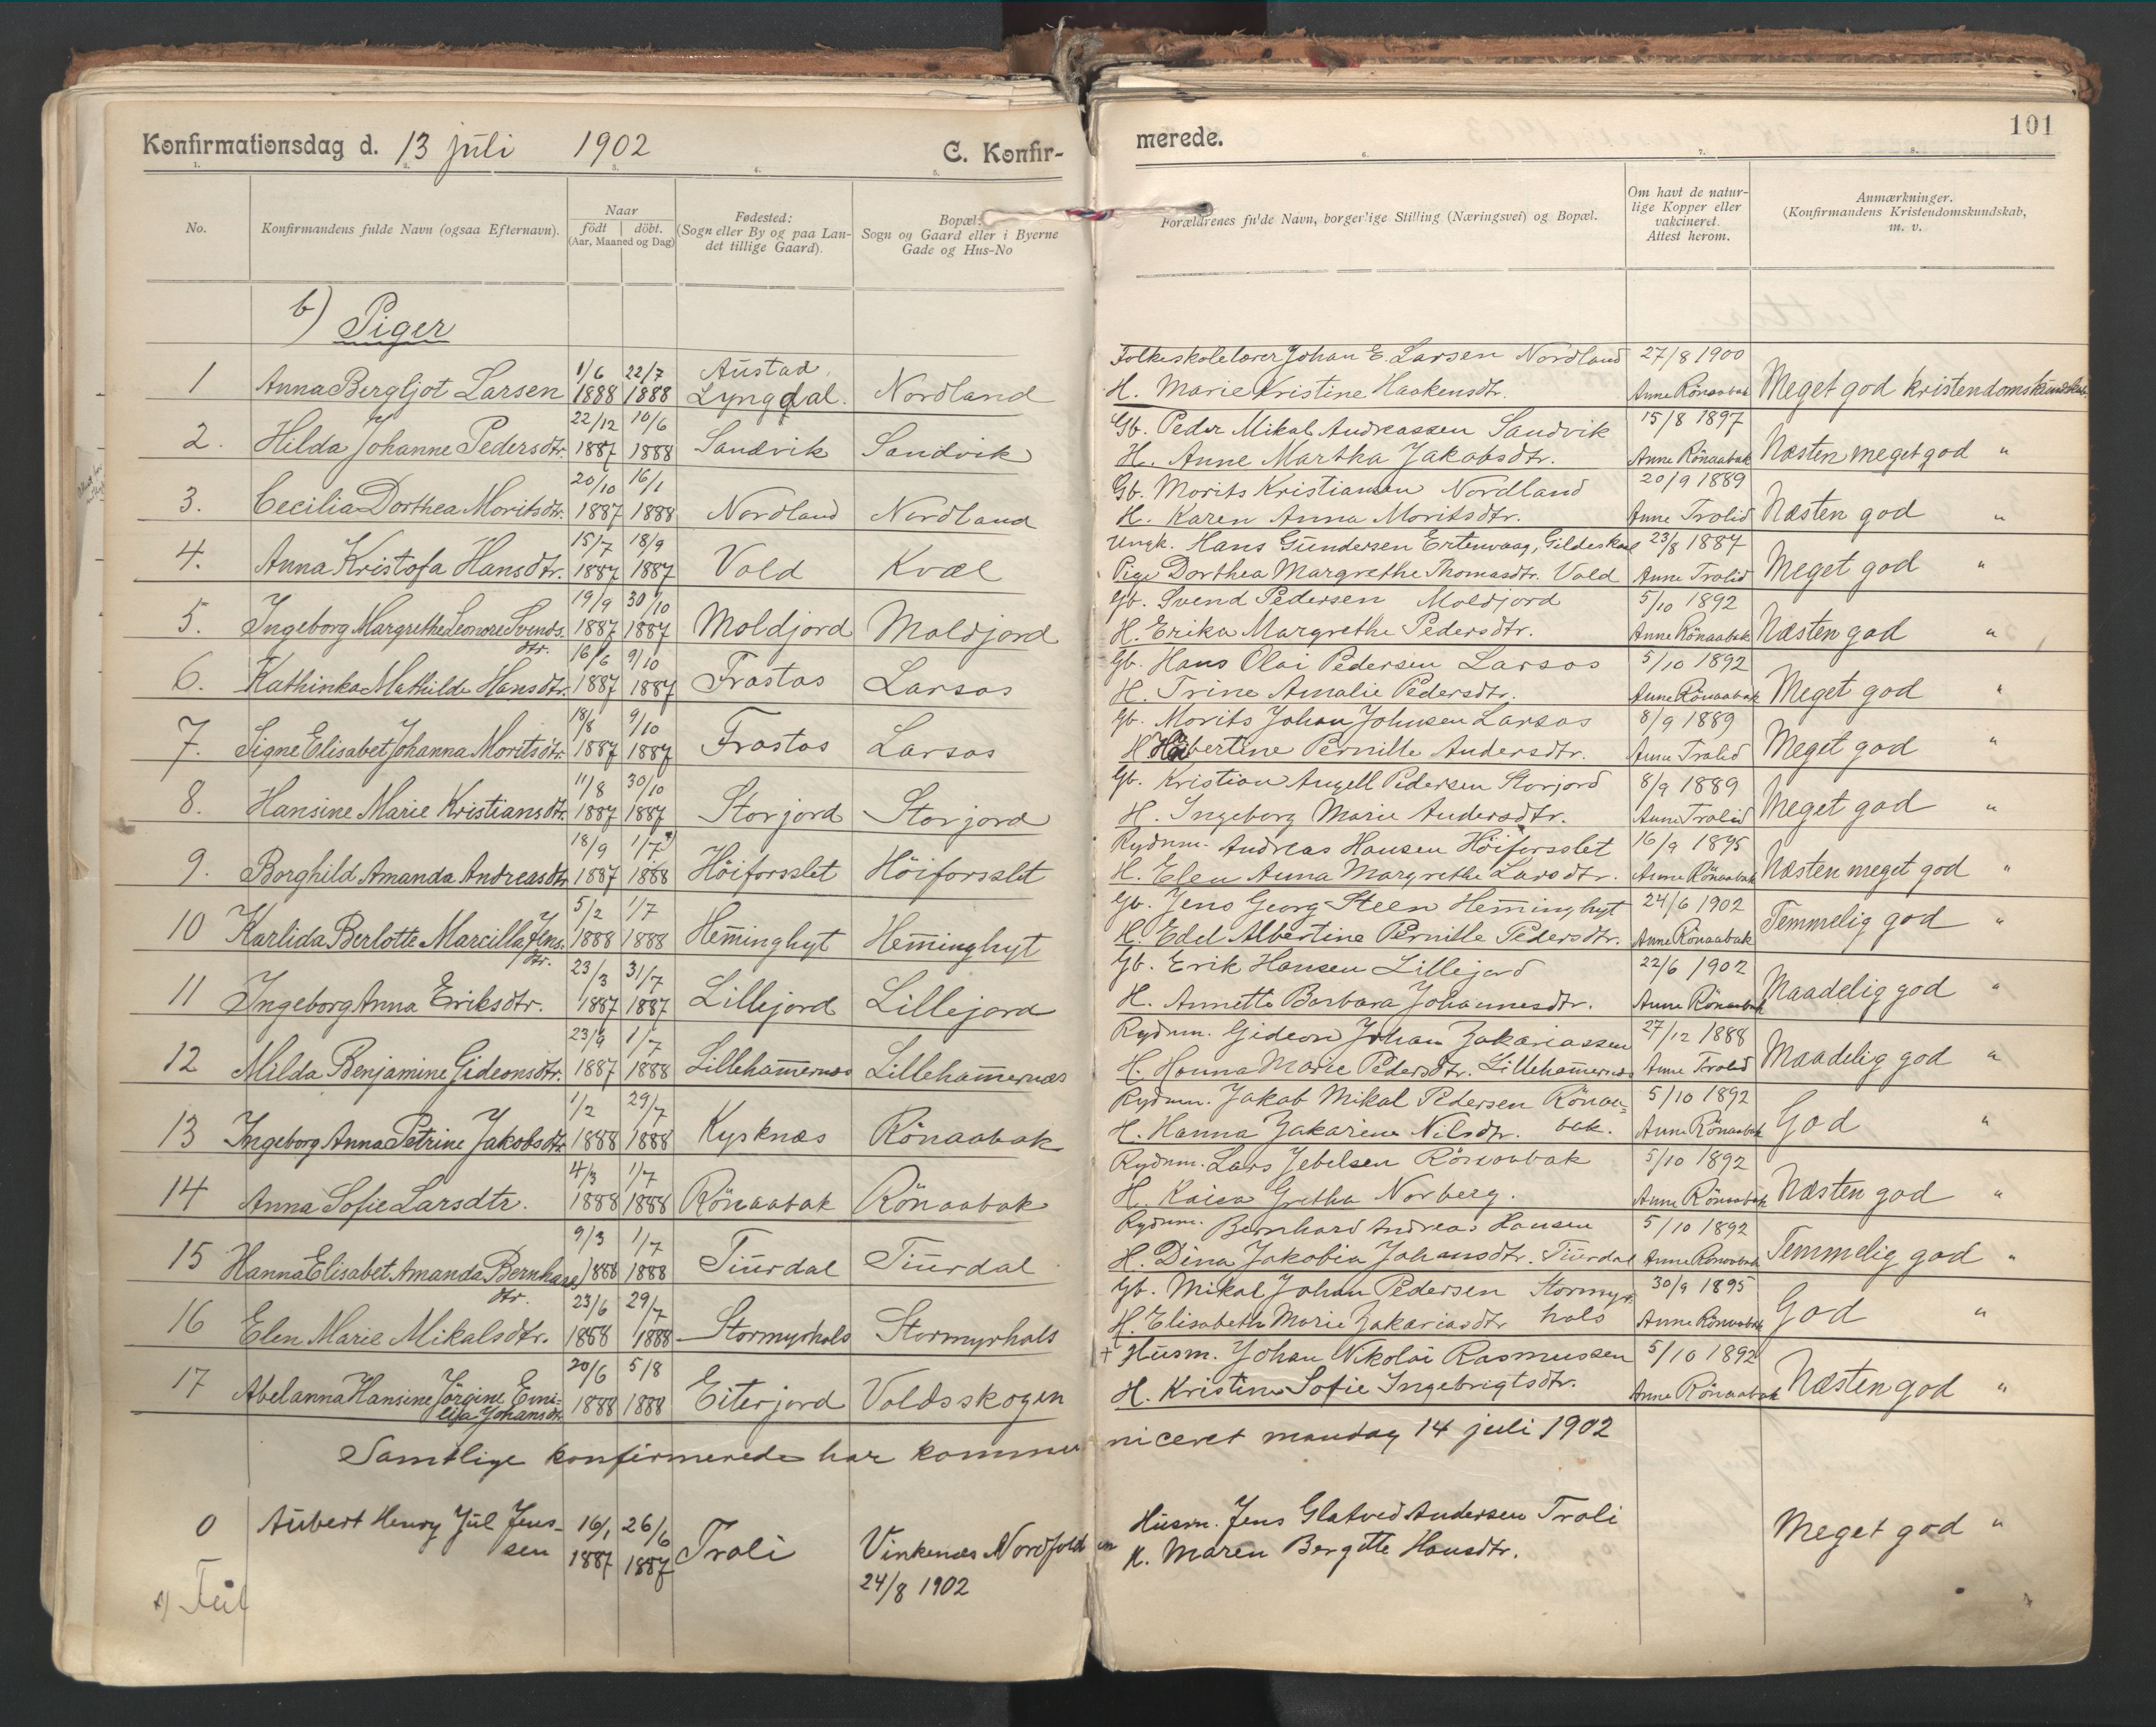 101
Konfirmationsdag d. 13 juli 1902 C. Konfir- merede.
1. 2. 3. 4. 5. 6. 7. 8.
No.
Konfirmandens fulde Navn (ogsaa Efternavn).
Naar
födt döbt.
(Aar, Maaned og Dag)
Fødested:
(Sogn eller By og paa Lan-
det tillige Gaard).
Bopæl:
Sogn og Gaard eller i Byerne
Gade og Hus-No
Forældrenes fulde Navn, borgerlige Stilling (Næringsvei) og Bopæl.
Om havt de natur-
lige Kopper eller
vakcineret.
Attest herom.
Anmærkninger.
(Konfirmandens Kristendomskundskab,
m. v.
b) Piger
1/6 22/7 Austad. Folkeskolelærer Johan E. Larsen Nordland 27/8 1900
1 Anna Bergljot Larsen 1888 1888 Lyngdal. Nordland H. Marie Kristine Haakensdtr. Anne Rönaabak Meget god kristendomskundskab
22/12 10/6 Gb. Peder Mikal Andreassen Sandvik 15/8 1897
2. Hilda Johanne Pedersdtr. 1887 1888 Sandvik Sandvik H. Anne Martha Jakobsdtr. Anne Rönaabak Næsten meget god "
20/10 16/1 Gb. Morits Kristiansen Nordland 20/9 1889
3. Cecilia Dorthea Moritsdtr. 1887 1888 Nordland Nordland H. Karen Anna Moritsdtr. Anne Trolid Næsten god "
15/7 18/9 Ungk. Hans Gundersen Ertenvaag, Gildeskaal 23/8 1887
4. Anna Kristofa Hansdtr. 1887 1887 Vold Kvæl Pige Dorthea Margrethe Thomasdtr. Vold Anne Trolid Meget god "
19/9 30/10 Gb. Svend Pedersen Moldjord 5/10 1892
5. Ingeborg Margrethe Leonore Svends. 1887 1887 Moldjord Moldjord H. Erika Margrethe Pedersdtr. Anne Rönaabak Næsten god "
dtr. 16/6 9/10 Gb. Hans Olai Pedersen Larsos 5/10 1892
6. Kathinka Mathilde Hansdtr. 1887 1887 Frostos Larsos H. Trine Amalie Pedersdtr. Anne Rönaabak Meget god "
18/8 9/10 Gb. Morits Johan Johnsen Larsos 8/9 1889
7. Signe Elisabet Johanna Moritsdtr. 1887 1887 Frostos Larsos H. Pernille Andersdtr. Anne Trolid Meget god "
11/8 30/10 Gb. Kristian Angell Pedersen Storjord 8/9 1889
8. Hansine Marie Kristiansdtr. 1887 1887 Storjord Storjord H. Ingeborg Marie Andersdtr. Anne Trolid Meget god "
18/9 1/7 Rydnm. Andreas Hansen Höiforsslet 16/9 1895
9. Borghild Amanda Andreasdtr 1887 1888 Höiforsslet Höiforsslet H. Elen Anna Margrethe Larsdtr. Anne Rönaabak Næsten meget god "
5/2 1/7 Gb. Jens Georg Steen Heminghyt 24/6 1902
10 Karlida Berlotte Marcilla Jens. 1888 1888 Heminghyt Heminghyt H. Edel Albertine Pernille Pedersdtr. Anne Rönaabak Temmelig god "
dtr. 23/3 31/7 Gb. Erik Hansen Lillejord 22/6 1902
11 Ingeborg Anna Eriksdtr. 1887 1887 Lillejord Lillejord H. Annette Barbara Johannesdtr. Anne Rönaabak Maadelig god "
23/9 1/7 Rydnm. Gideon Johan Zakariassen 27/12 1888
12 Milda Benjamine Gideonsdtr. 1887 1888 Lillehamernæs Lillehamernæs H. Hanna Marie Pedersdtr. Lillehamernæs Anne Trolid Maadelig god "
1/2 29/7 Rydnm. Jakob Mikal Pedersen Rönaa= 5/10 1892
13 Ingeborg Anna Petrine Jakobsdtr. 1888 1888 Kysknæs Rönaabak H. Hanna Zakarine Nilsdtr. bak. Anne Rönaabak God "
4/3 1/7 Rydnm. Lars Jebelsen Rönaabak 5/10 1892
14 Anna Sofie Larsdtr. 1888 1888 Rönaabak Rönaabak H. Kaisa Gretha Norberg. Anne Rönaabak Næsten god "
9/3 1/7 Rydnm. Bernhard Andreas Hansen 5/10 1892
15 Hanna Elisabet Amanda Bernhards 1888 1888 Tiurdal Tiurdal H. Dina Jakobia Johansdtr. Tiurdal Anne Rönaabak Temmelig god "
dtr. 23/6 29/7 Gb. Mikal Johan Pedersen Stormyr 30/9 1895
16 Elen Marie Mikalsdtr. 1888 1888 Stormyrhals Stormyrhals H. Elisabeth Marie Zakariasdtr hals Anne Rönaabak God "
20/6 5/8 + Husm. Johan Nikolai Rasmussen 5/10 1892
17 Abelanna Hansine Jörgine Emi- 1888 1888 Eiterjord Voldsskogen H. Kristine Sofie Ingebrigtsdtr. Anne Rönaabak Næsten god "
lija Johansdtr
Samtlige konfirmerede har kommuniceret mandag 14 juli 1902
0 Aubert Henry Jul Jens- 16/1 26/6 Husm. Jens Glatved Andersen Troli Meget god "
sen 1887 1887 Troli Vinkenæs Nordfolden H. Maren Bergitte Hansdtr.
24/8 1902
Feil